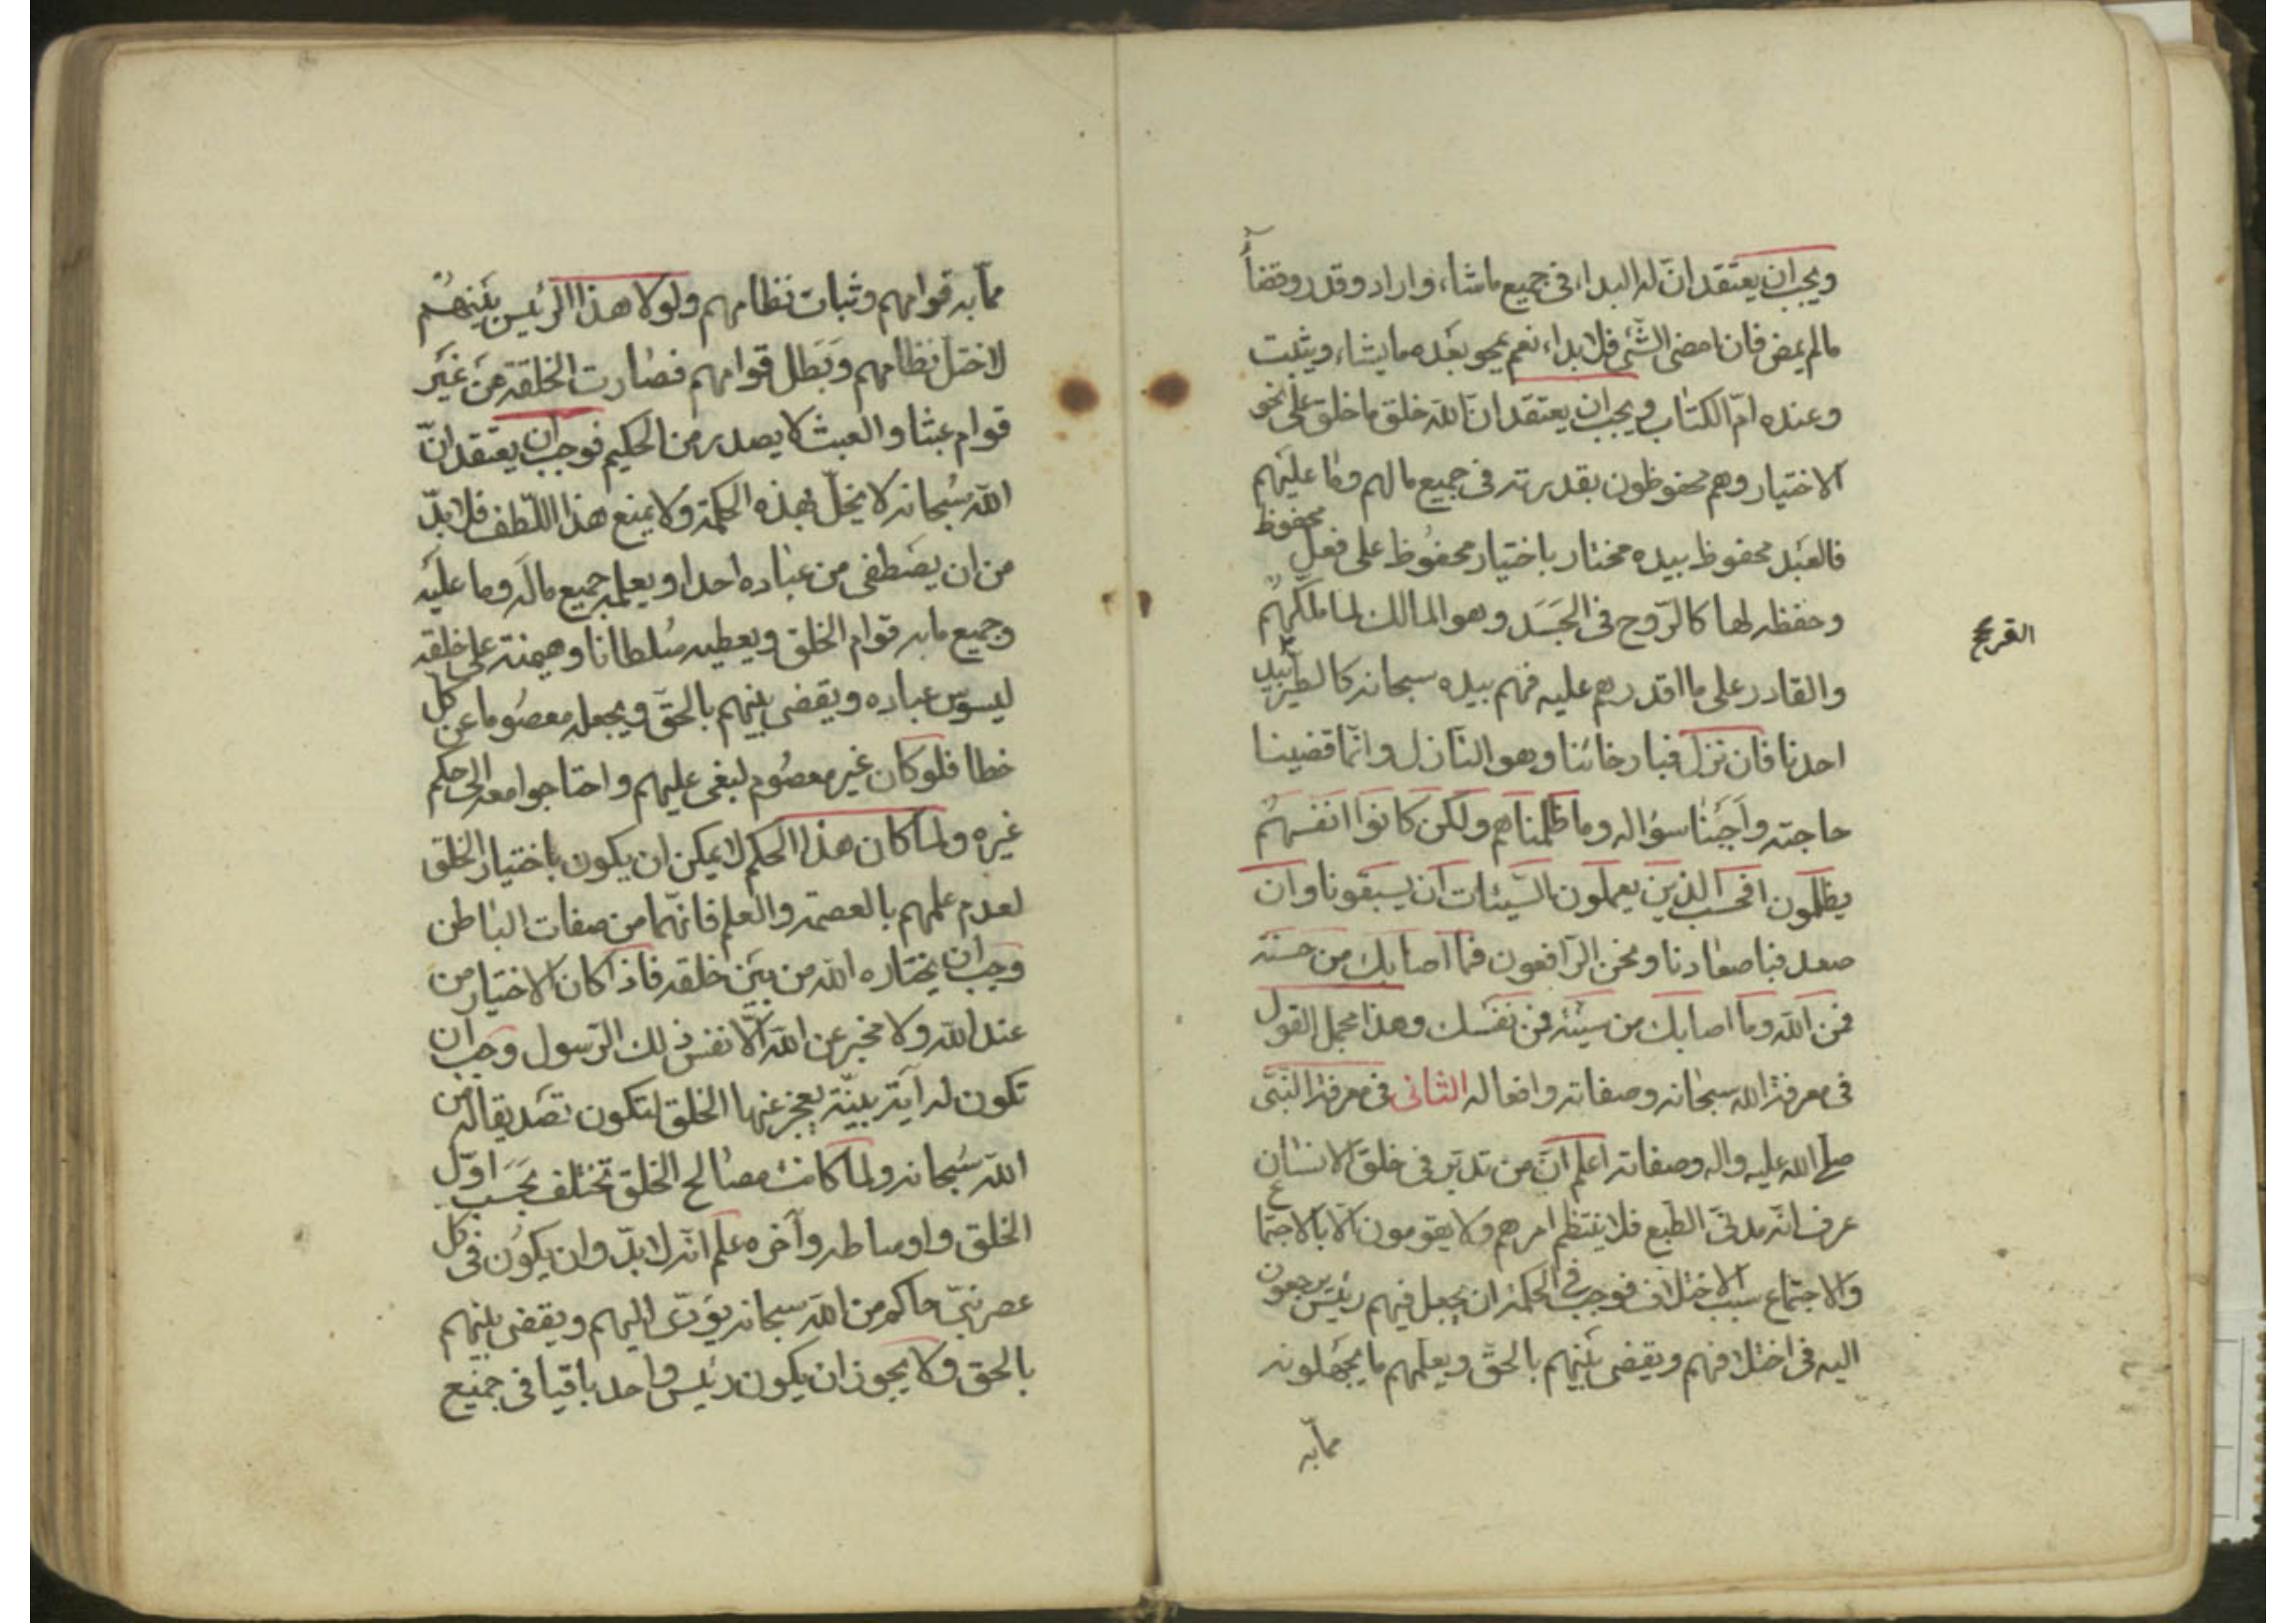 ويجب ان يعتقد ان له البداء في جميع ما شاء واراد وقدر وقضا
مالم يمض فان امضى الشئ فلا بداء نعم يمحو بعده ما يشاء ويثبت
وعنده ام الكتاب ويجب ان يعتقد ان الله خلق ما خلق على نحو
الاختيار وهم محفوظون بقدرته في جميع ما لهم وما عليهم
فالعبد محفوظ بيده مختار باختيار محفوظ على فعل محفوظ
وحفظه لها كالروح في الجسد وهو المالك لما ملكهم
القريح
والقادر على ما اقدرهم عليه فهم بيده سبحانه كالطير بيد
احدنا فان نزل فبارخائنا وهو النازل وانما قضينا
حاجته واجبنا سؤاله وما ظلمناهم ولكن كانوا انفسهم
يظلمون افحسب الذين يعملون السيئات ان يسبقونا وان
صعد فباصعادنا ونحن الرافعون فما اصابك من حسنة
فمن الله وما اصابك من سيئة فمن نفسك وهذا مجمل القول
في معرفة الله سبحانه وصفاته وافعاله الثاني في معرفة النبي
صلى الله عليه واله وصفاته اعلم ان من تدبر في خلق الانسان
عرف انه مدني الطبع فلا ينتظم امرهم ولا يقومون الا بالاجتماع
والاجتماع سبب الاختلاف فوجب في الحكمة ان يجعل فيهم رئيس يرجعون
اليه في اختلافهم ويقضي بينهم بالحق ويعلمهم ما يجهلونه
مما به
مما به قوامهم وثبات نظامهم ولولا هذا الرئيس بينهم
لاختل نظامهم وبطل قوامهم فصارت الخلقة من غير
قوام عبثا والعبث لا يصدر من الحكيم فوجب ان يعتقد ان
الله سبحانه لا يخل بهذه الحكمة ولا يمنع هذا اللطف فلا بد
من ان يصطفى من عباده احدا ويعلمه جميع ما له وما عليه
وجميع ما به قوام الخلق ويعطيه سلطانا وهيمنة على خلقه
ليسوس عباده ويقضي بينهم بالحق ويجعله معصوما عن كل
خطا فلو كان غير معصوم لبغى عليهم واحتاجوا معه الى حكم
غيره ولما كان هذا الحكم لا يمكن ان يكون باختيار الخلق
لعدم علمهم بالعصمة والعلم فانهما من صفات الباطن
وجب ان يختاره الله من بين خلقه فاذا كان الاختيار من
عند الله ولا مخبر عن الله الا نفس ذلك الرسول وجب ان
تكون له آية بينة يعجز عنها الخلق لتكون تصديقا له من
الله سبحانه ولما كانت مصالح الخلق تختلف بحسب اول
الخلق واوساطه وآخره علم انه لا بد وان يكون في كل
عصر نبي حاكم من الله سبحانه يؤدى اليهم ويقضي بينهم
بالحق ولا يجوز ان يكون رئيس واحد باقيا في جميع